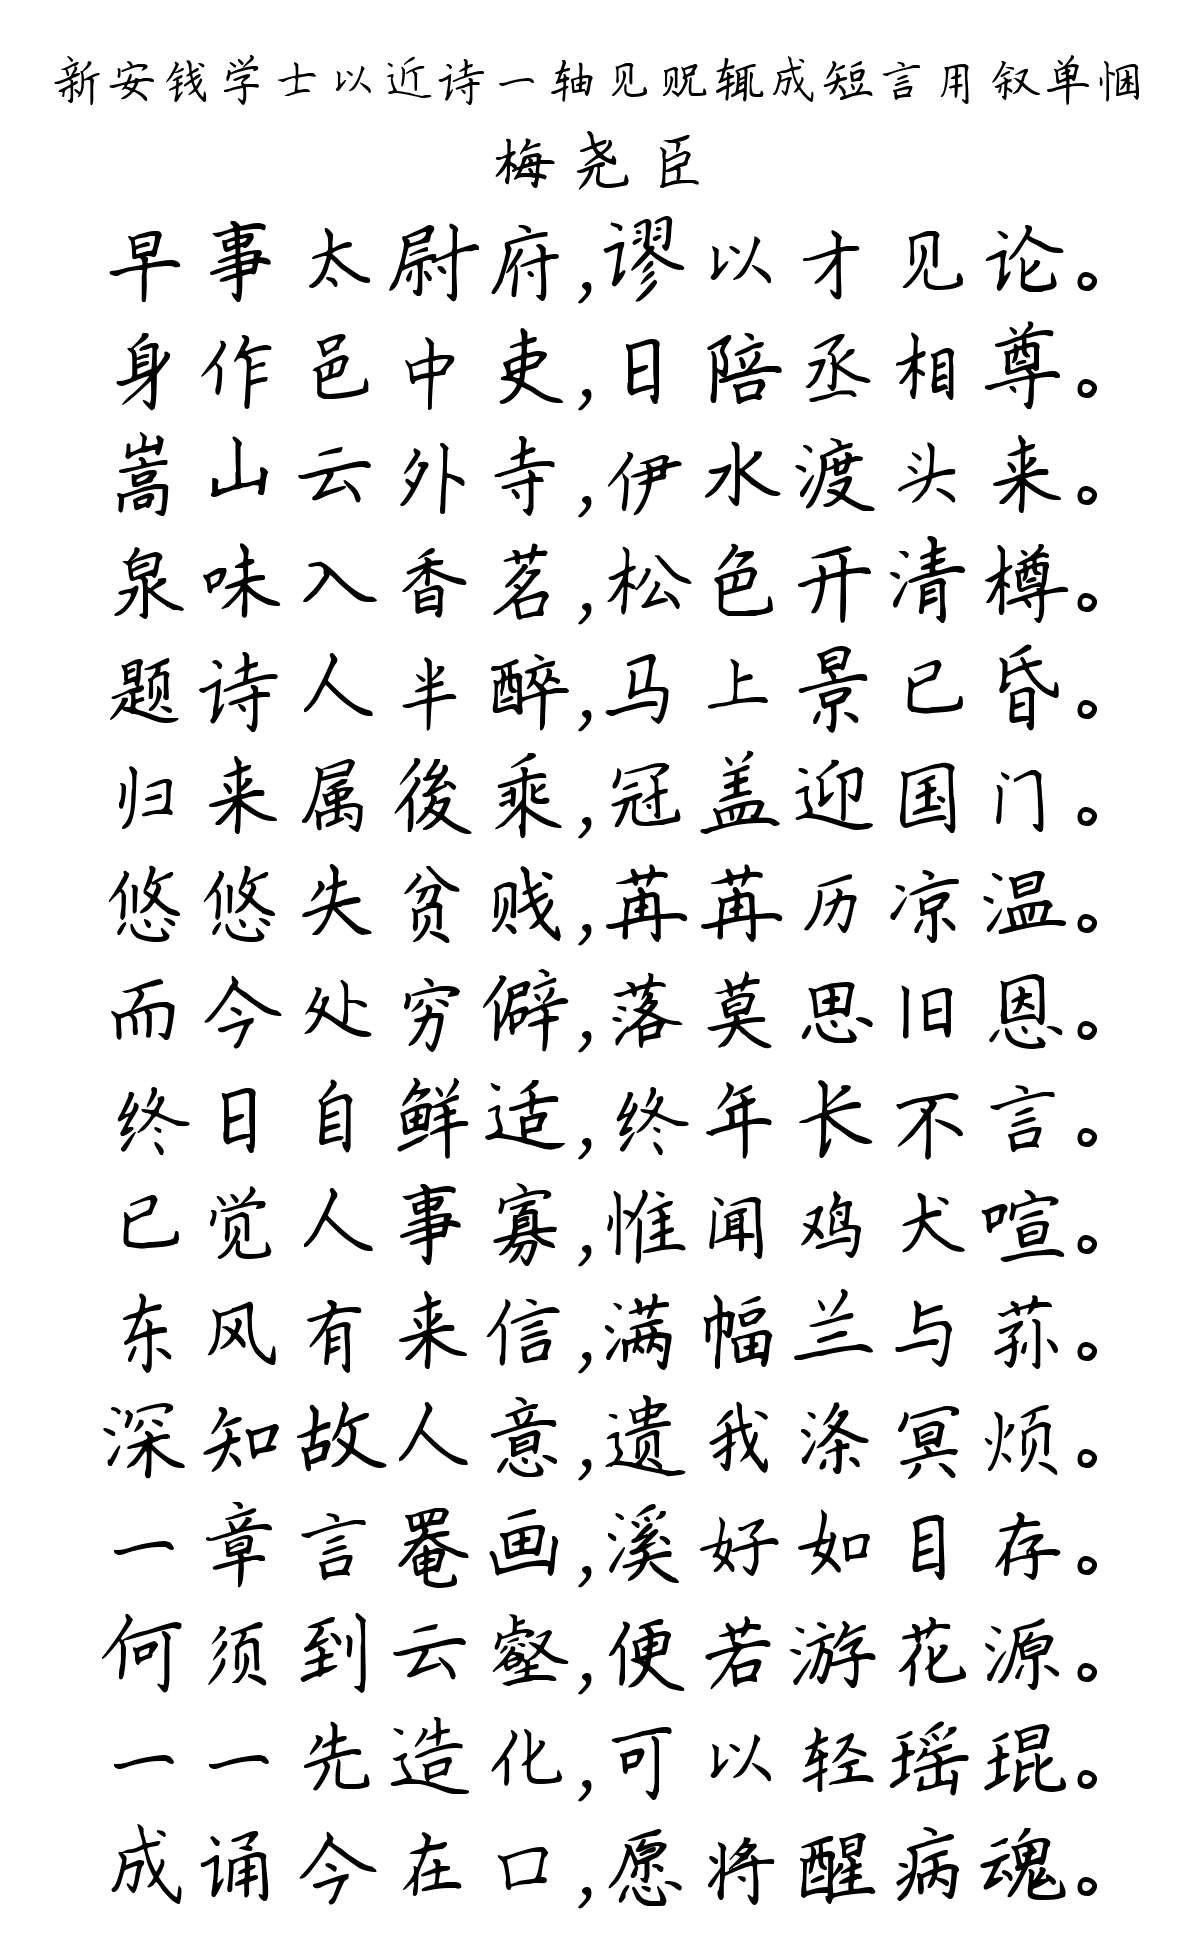 新安钱学士以近诗一轴见贶辄成短言用叙单悃
梅尧臣
早事太尉府,谬以才见论。
身作邑中吏,日陪丞相尊。
嵩山云外寺,伊水渡头来。
泉味入香茗,松色开清樽。
题诗人半醉,马上景已昏。
归来属後乘,冠盖迎国门。
悠悠失贫贱,苒苒历凉温。
而今处穷僻,落莫思旧恩。
终日自鲜适,终年长不言。
已觉人事寡,惟闻鸡犬喧。
东风有来信,满幅兰与荪。
深知故人意,遗我涤冥烦。
一章言罨画,溪好如目存。
何须到云壑,便若游花源。
一一先造化,可以轻瑶琨。
成诵今在口,愿将醒病魂。